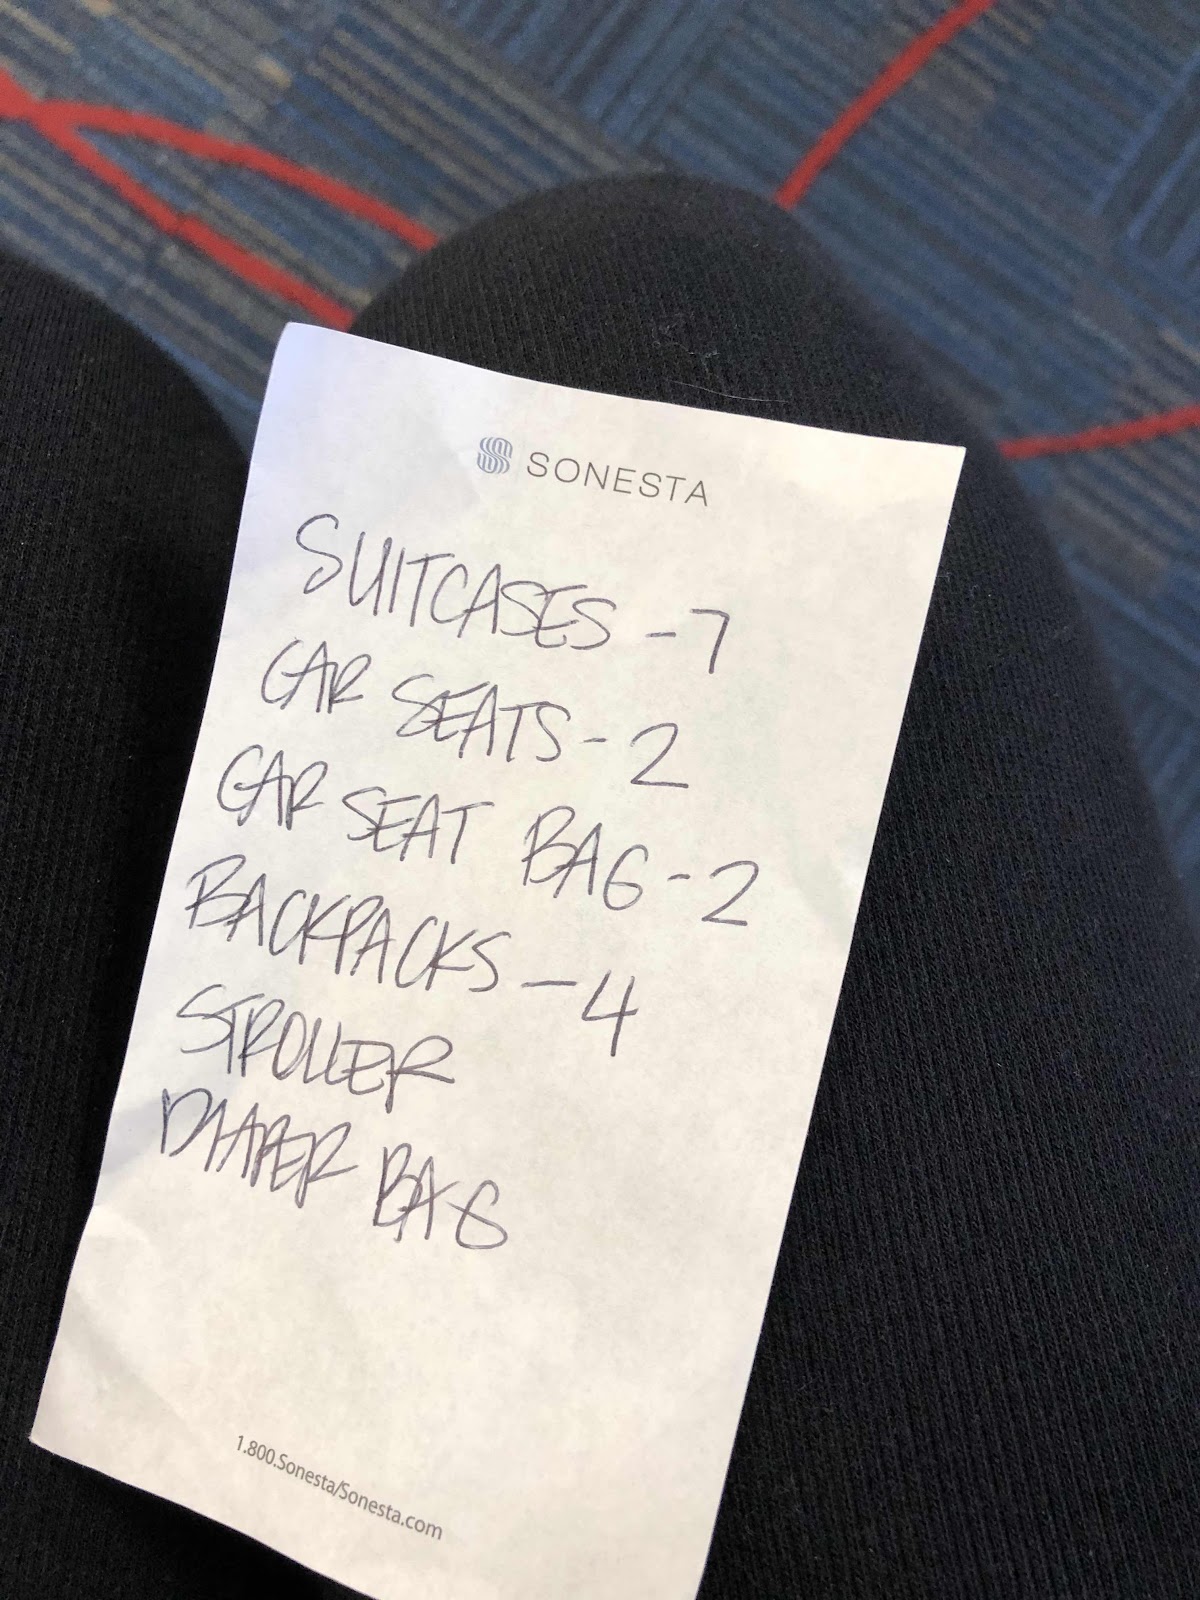 SONESTA
SUITCASES - 7
CAR SEATS - 2
CAR SEAT BAG - 2
BACKPACKS - 4
STROLLER
DIAPER BAG
1.800.Sonesta/Sonesta.com